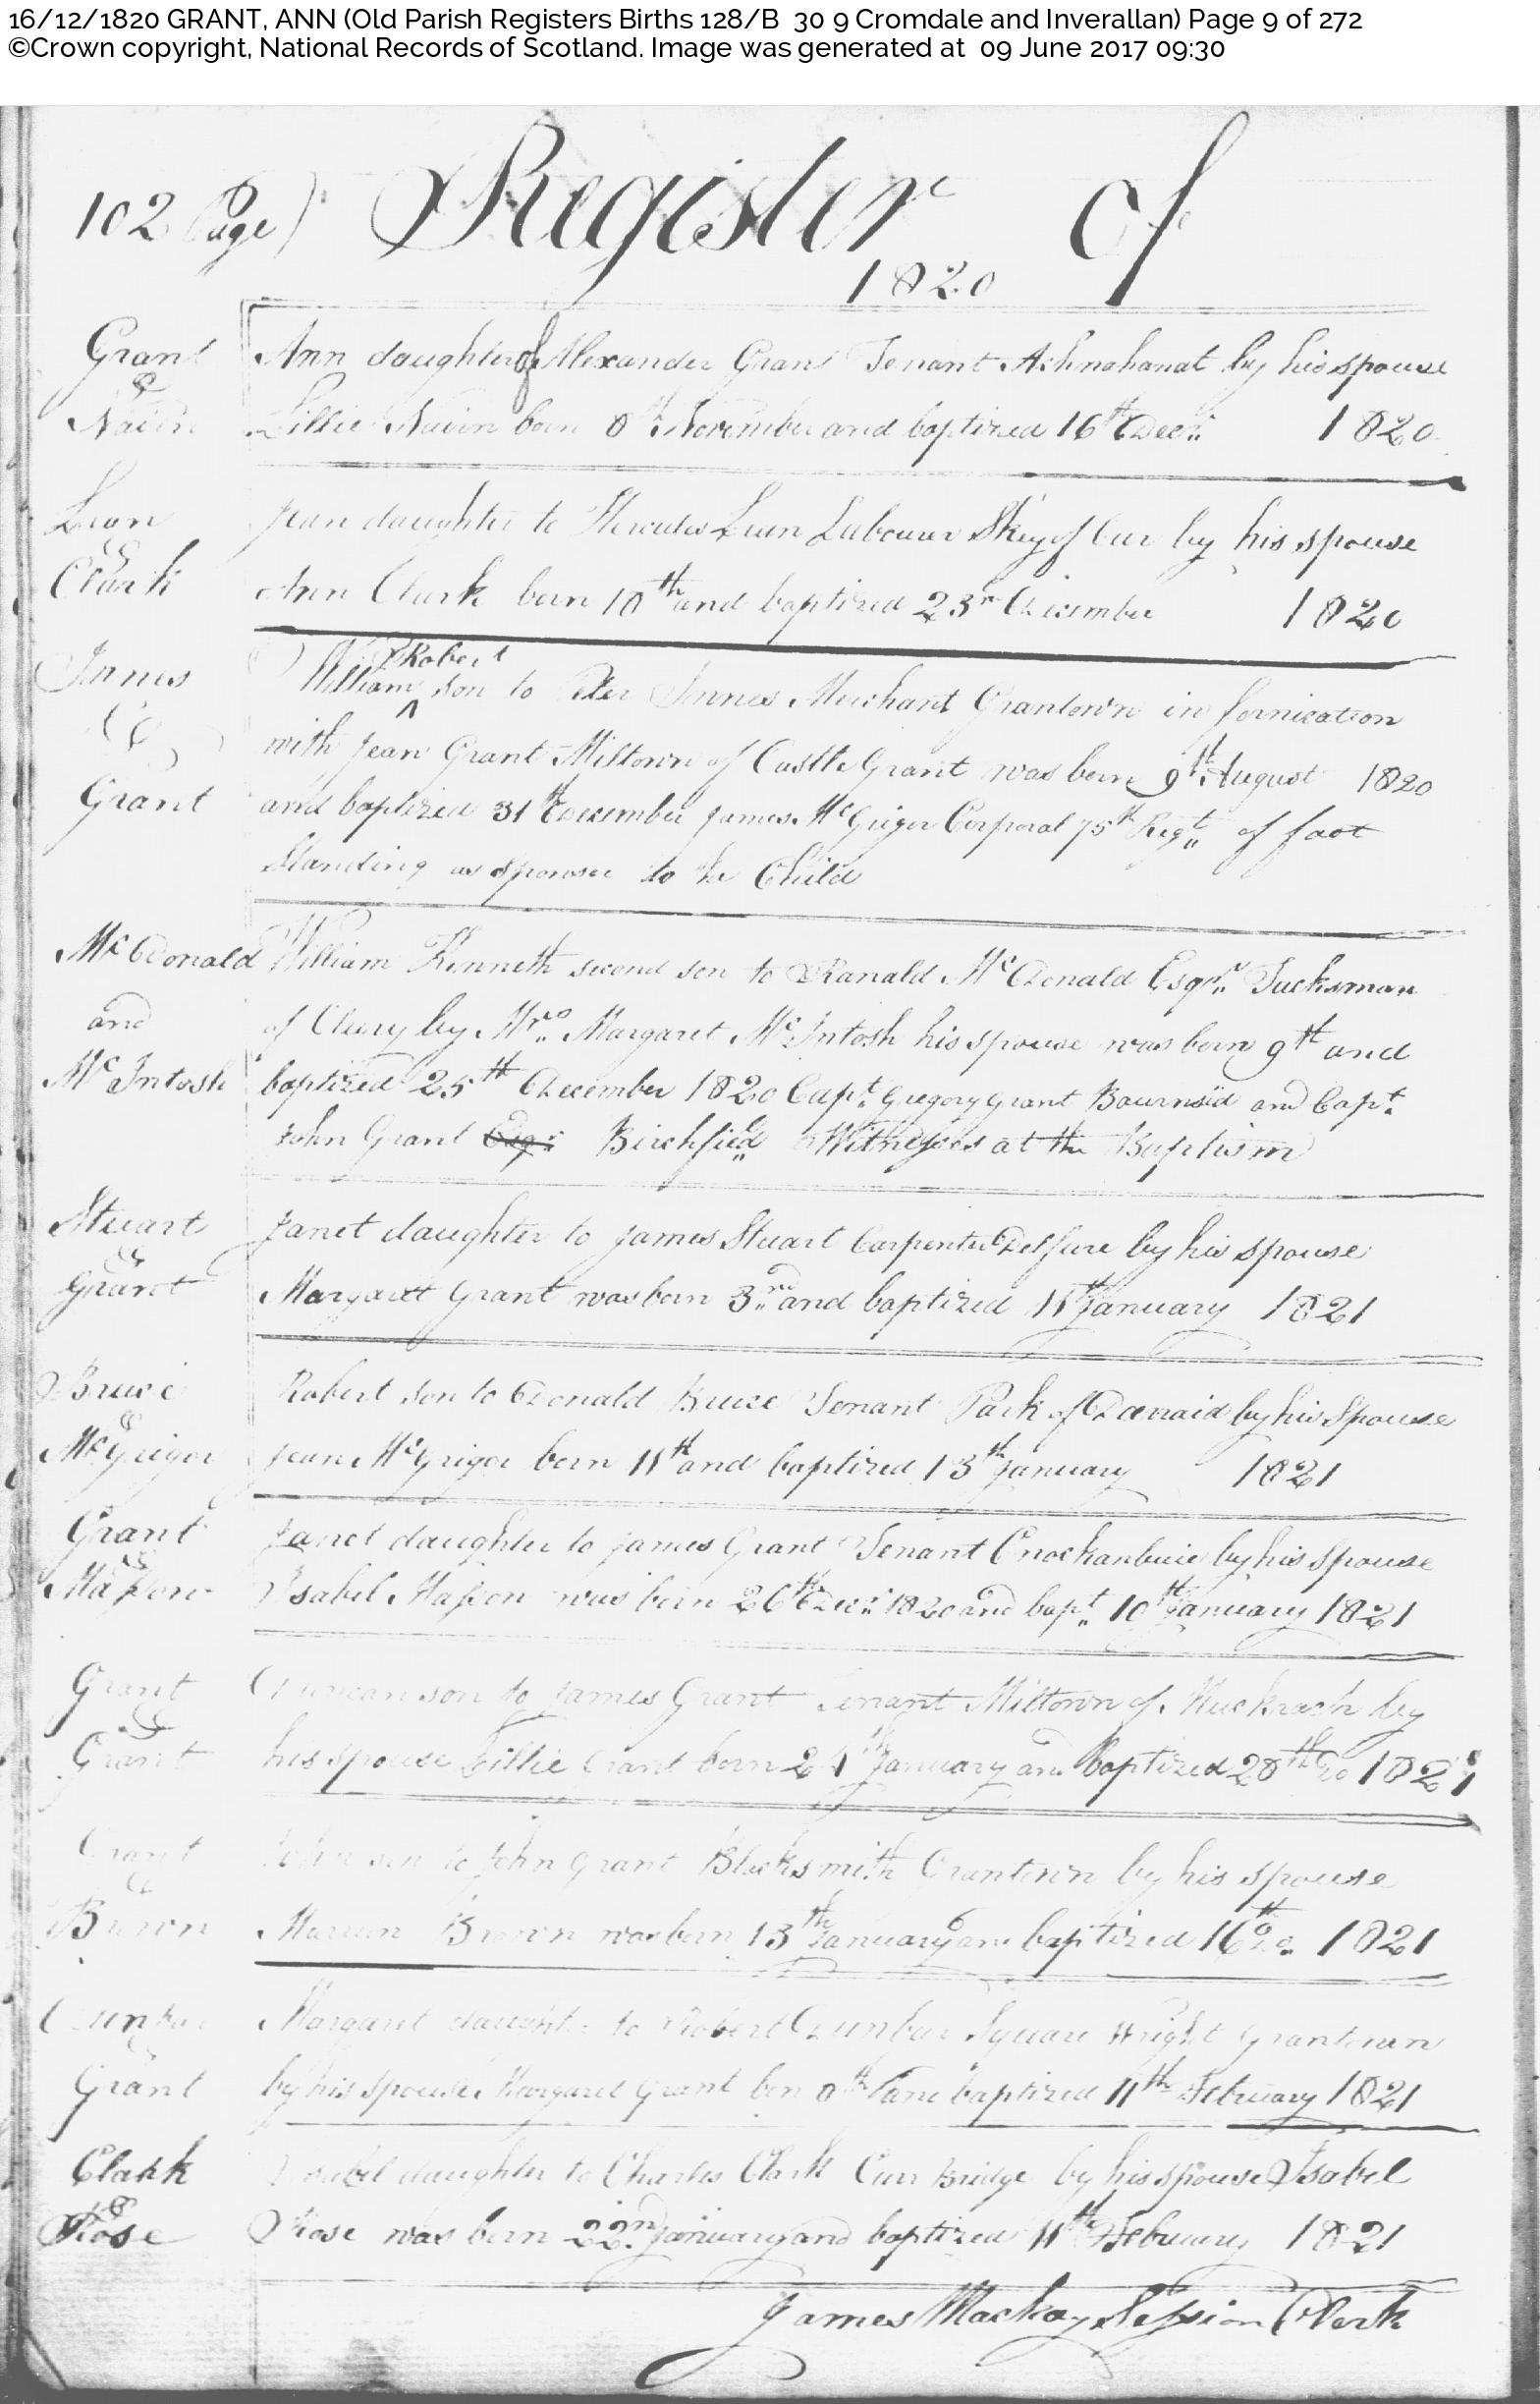 16/12/1820 GRANT, ANN (Old Parish Registers Births 128/B 30 9 Cromdale and Inverallan) Page 9 of 272
©Crown copyright, National Records of Scotland. Image was generated at 09 June 2017 09:30
102 Page) Register of
1820
Grant Ann daughter of Alexander Grant Tenant Achnahanat by his spouse
&
Nairn Lillie Nairn born 8th November and baptized 16th Decr 1820
Leon Jean daughter to Hercules Leon Labourer Skey of Cur by his spouse
&
Clark Ann Clark born 10th and baptized 23rd December 1820
Robert
Innes William ^ son to Peter Innes Merchant Grantown in fornication
& with Jean Grant Miltown of Castle Grant was born 9th August 1820
Grant and baptized 31st December James McGrigor Corporal 75th Regt of foot
Standing as sponser to the Child
McDonald William Kenneth second son to Ranald McDonald Esqr Tacksman
and of Clury by Mrs Margaret McIntosh his spouse was born 9th and
McIntosh baptized 25th December 1820 Capt Gregory Grant Bournsid and Capt
John Grant Esqr Birchfield Witnesses at the Baptism
Stuart Janet daughter to James Stuart Carpenter Delfure by his spouse
&
Grant Margaret Grant was born 3rd and baptized 11th January 1821
Bruce Robert son to Donald Bruce Tenant Park of by his Spouse
&
McGrigor Jean McGrigor born 11th and baptized 13th January 1821
Grant Janet daughter to James Grant Tenant Cnockanbuie by his Spouse
&
Masson Isabel Masson was born 26th Decr 1820 and bapt 10th January 1821
Grant Duncan son to James Grant Tenant Miltown of Muckrach by
&
Grant his spouse Lillie Grant born 24th January and baptized 28th Do 1821
Grant John son to John Grant Blacksmith Grantown by his spouse
&
Brown Brown was born 13th January and baptized 16th Do 1821
Dunbar Margaret daughter to Robert Dunbar Square Wright Grantown
&
Grant by his spouse Margaret Grant born 8th and baptized 11th February 1821
Clark Isabel daughter to Charles Clark Curr Bridge by his spouse Isabel
&
Rose Rose was born 22nd January and baptized 11th February 1821
James Mackay Session Clerk